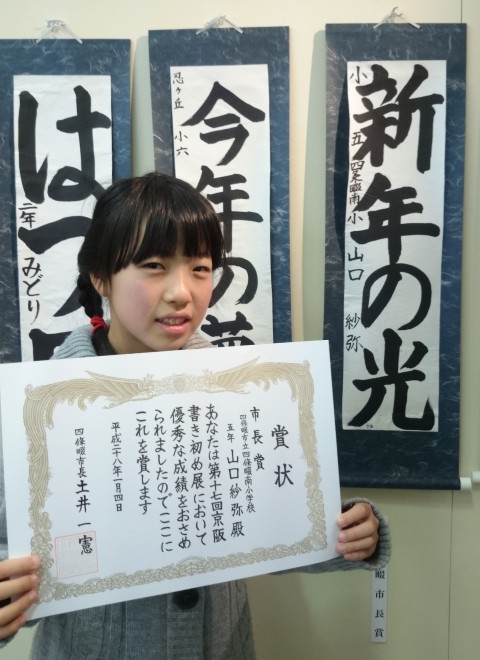 新年の光
小五 四條畷南小 山口 紗弥
今年の夢
忍ヶ丘 小六
はつ
二年 みどり
賞状
市長賞
四條畷市立四條畷南小学校
五年 山口紗弥殿
あなたは第十七回京阪
書き初め展において
優秀な成績をおさめ
られましたのでここに
これを賞します
平成二十八年一月四日
四條畷市長 土井一憲
畷市長賞